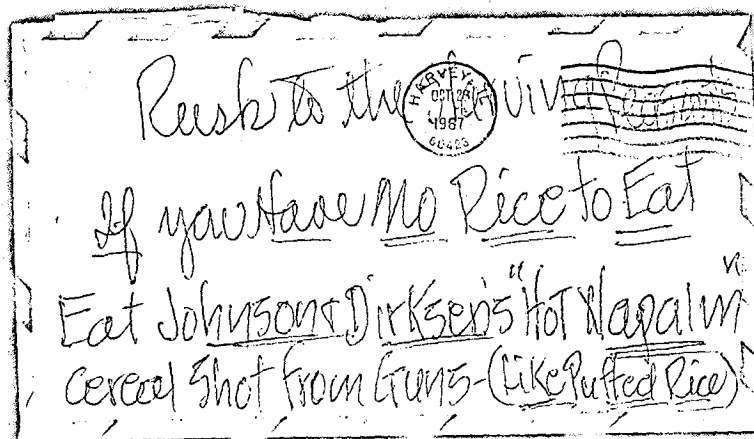 Rusk To the
HARVEY, ILL
OCT 28
1967
60426
If you Have No Rice to Eat
Eat Johnson & Dirksen's "Hot Napalm"
cereal Shot from Guns-(Like Puffed Rice)